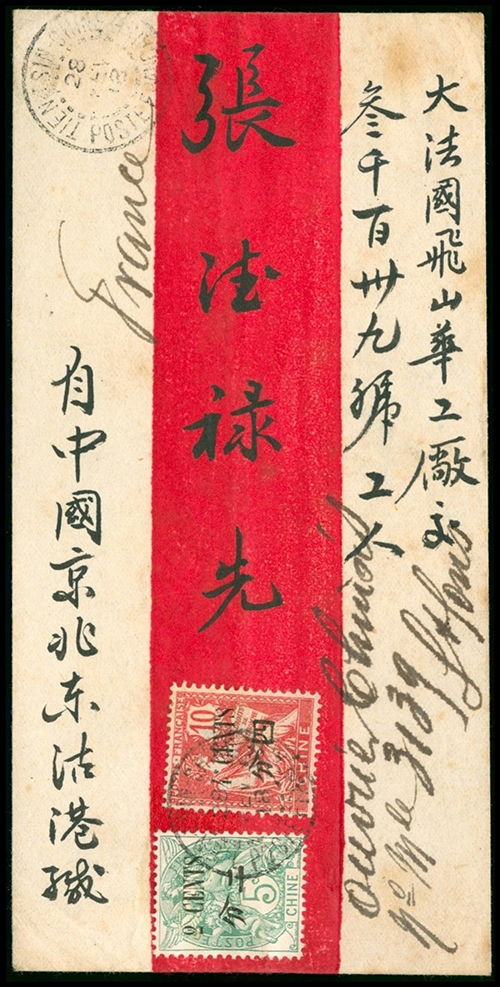 大法國飛山華工廠交
叁千百卅九號工人
張德禄先
自中國京兆东沽港缄
France
Ouvrier Chinois
No Mle 3139 St Fons
TIEN-TSIN
POSTE
28
18
FRANÇAISE
10
4 CENTS
四分
CHINE
5
2 CENTS
分
CHINE
POSTES